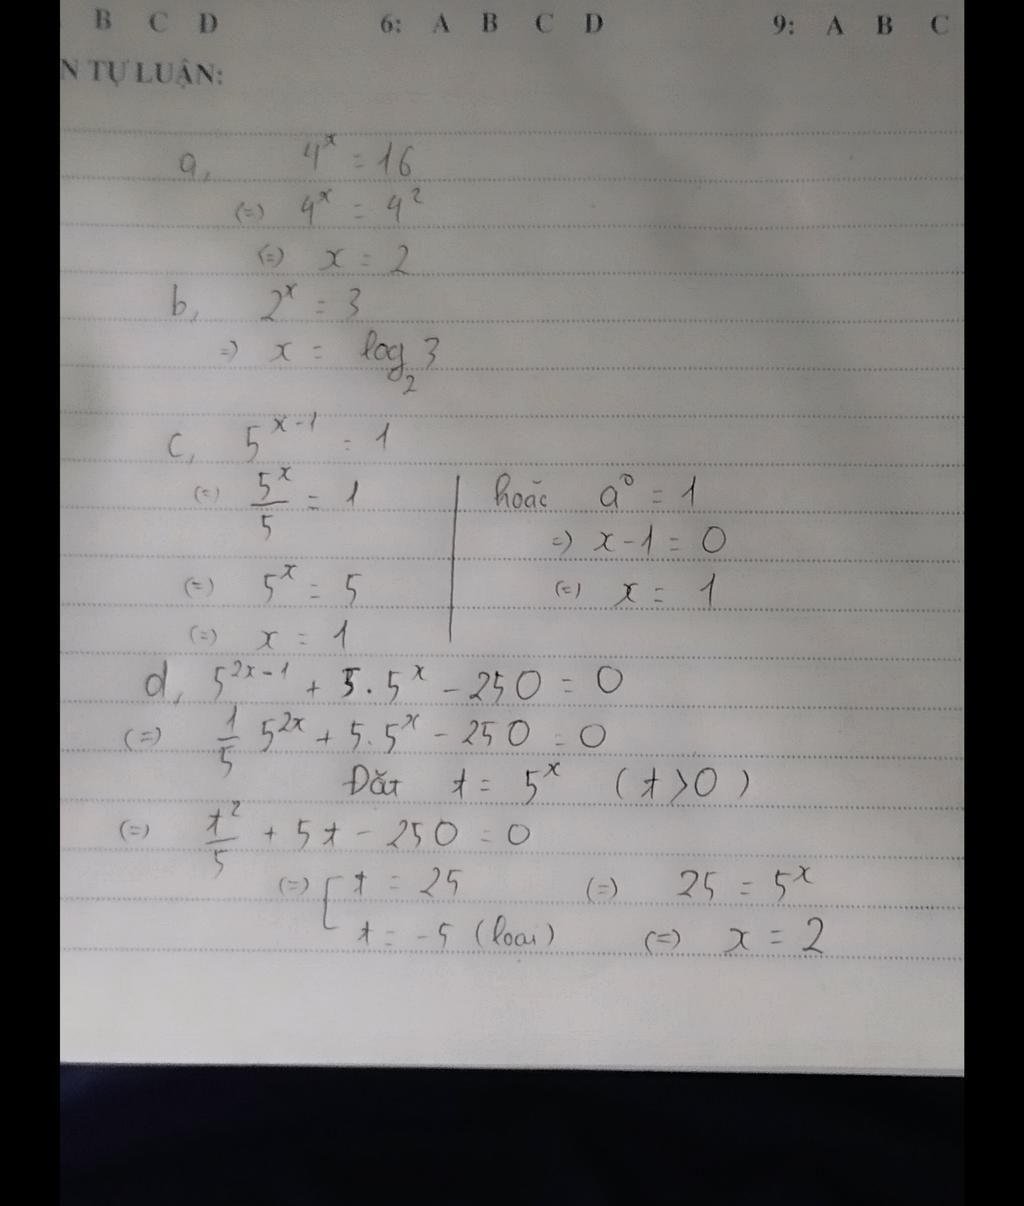 B C D 6: A B C D 9: A B C
N TỰ LUẬN:
a, 4^x = 16
(=) 4^x = 4^2
(=) x = 2
b, 2^x = 3
=) x = log_2 3
c, 5^{x-1} = 1
(=) 5^x/5 = 1 | hoặc a^0 = 1
=) x - 1 = 0
(=) 5^x = 5 | (=) x = 1
(=) x = 1
d, 5^{2x-1} + 5.5^x - 250 = 0
(=) 1/5 5^{2x} + 5.5^x - 250 = 0
Đặt t = 5^x (t > 0)
(=) t^2/5 + 5t - 250 = 0
(=) [ t = 25 (=) 25 = 5^x
t = -5 (loại) (=) x = 2